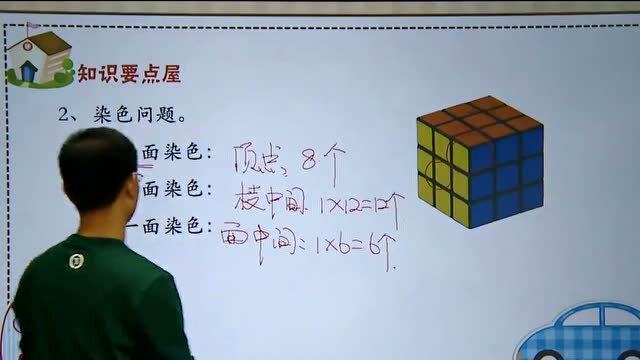 知识要点屋
2、染色问题。
面染色：顶点：8个
面染色：棱中间：1×12=12个
一面染色：面中间：1×6=6个.